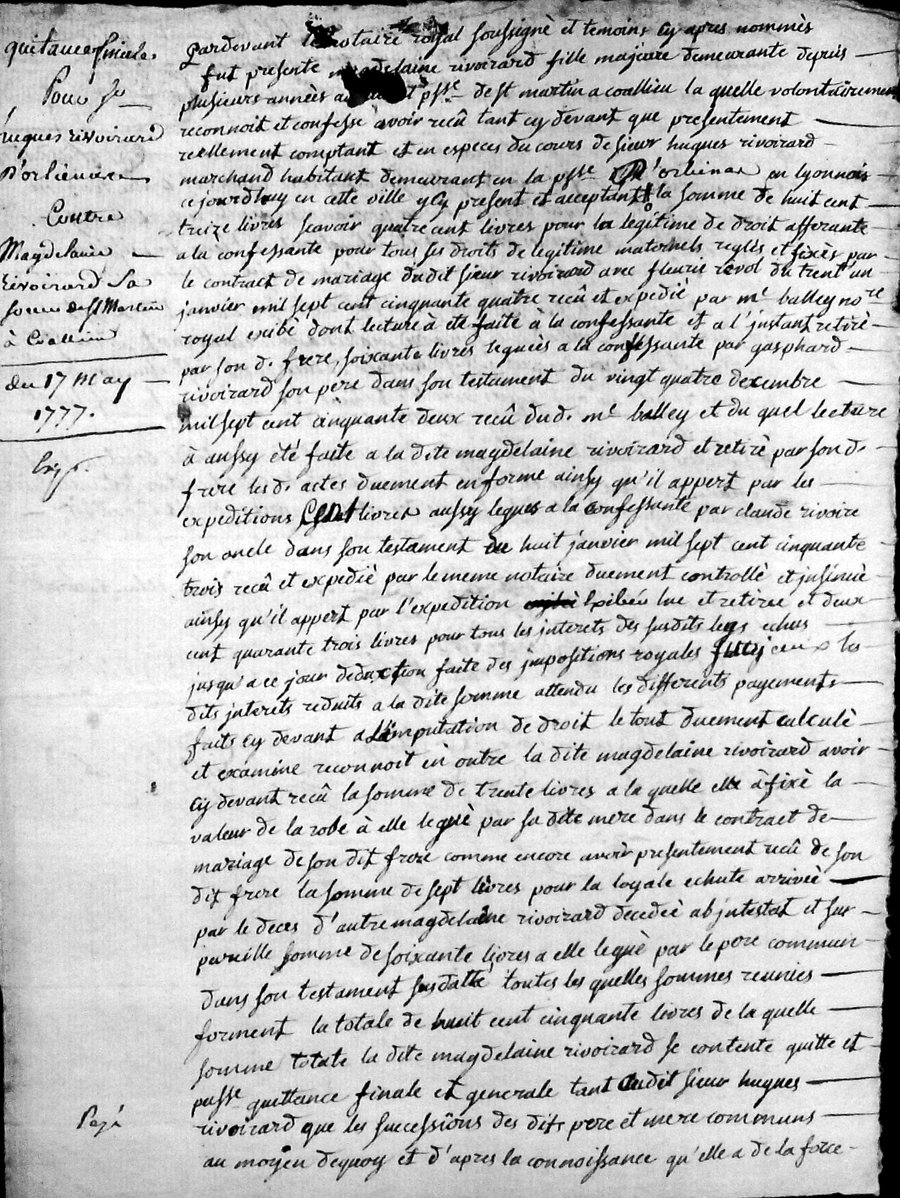 quitance finale
Pour Sr
hugues rivoirard
D'orlienas
Contre
Magdelaine
rivoirard sa
soeur de St Martin
à Coallieu
du 17 May
1777.
Pardevant le notaire royal soussigné et temoins cy apres nommès
fut presente magdelaine rivoirard fille majeure demeurante depuis
plusieurs années psse de st martin a coallieu la quelle volontairement
reconnoit et confesse avoir recû tant cy devant que presentement
reellement comptant et en especes du cours de sieur hugues rivoirard
marchand habitant demeurant en la psse D'orlienas en lyonnois
ce jourdhuy en cette ville y cy present et acceptant la somme de huit cent
treize livres scavoir quatre cent livres pour la legitime de droit afferante
a la confessante pour tous ses droits de legitime maternels reglès et fixès par
le contract de mariage dudit sieur rivoirard avec fleurie revol du trent un
janvier mil sept cent cinquante quatre recû et expedié par me balley nore
royal exibé dont lecture à eté faite à la confessante et a l'instant retirè
par son d. frere, soixante livres leguèes a la confessante par gasphard
rivoirard son pere dans son testament du vingt quatre decembre
mil sept cent cinquante deux recû dud. me balley et du quel lecture
à aussy été faite a la dite magdelaine rivoirard et retirè par son d.
frere les d. actes duement en forme ainsy qu'il appert par les
expeditions Cent livres aussy legués a la confessante par claude rivoire
son oncle dans son testament du huit janvier mil sept cent cinquante
trois recû et expedié par le meme notaire duement controllè et insinuè
ainsy qu'il appert par l'expedition exibée lue et retirée et deux
cent quarante trois livres pour tous les interets des susdits legs echus
jusqu'a ce jour deduction faite des impositions royales sur iceux les
dits interets reduits a la dite somme attendu les differents payements
faits cy devant a L'imputation de droit le tout duement calculè
et examine reconnoit en outre la dite magdelaine rivoirard avoir
cy devant recû la somme de trente livres a la quelle elle à fixè la
valeur de la robe à elle leguè par sa dite mere dans le contract de
mariage de son dit frere comme encore avoir presentement recû de son
dit frere la somme de sept livres pour la loyale echute arrivèe
par le deces d'autre magdelaine rivoirard decedeè ab intestat et sur
pareille somme de soixante livres a elle leguè par le pere commun
dans son testament susdatté toutes les quelles sommes reunies
forment la totale de huit cent cinquante livres de la quelle
somme totale la dite magdelaine rivoirard se contente quitte et
passe quittance finale et generale tant audit sieur hugues
rivoirard que les successions des dits pere et mere communs
au moyen dequoy et d'apres la connoissance qu'elle a de la force